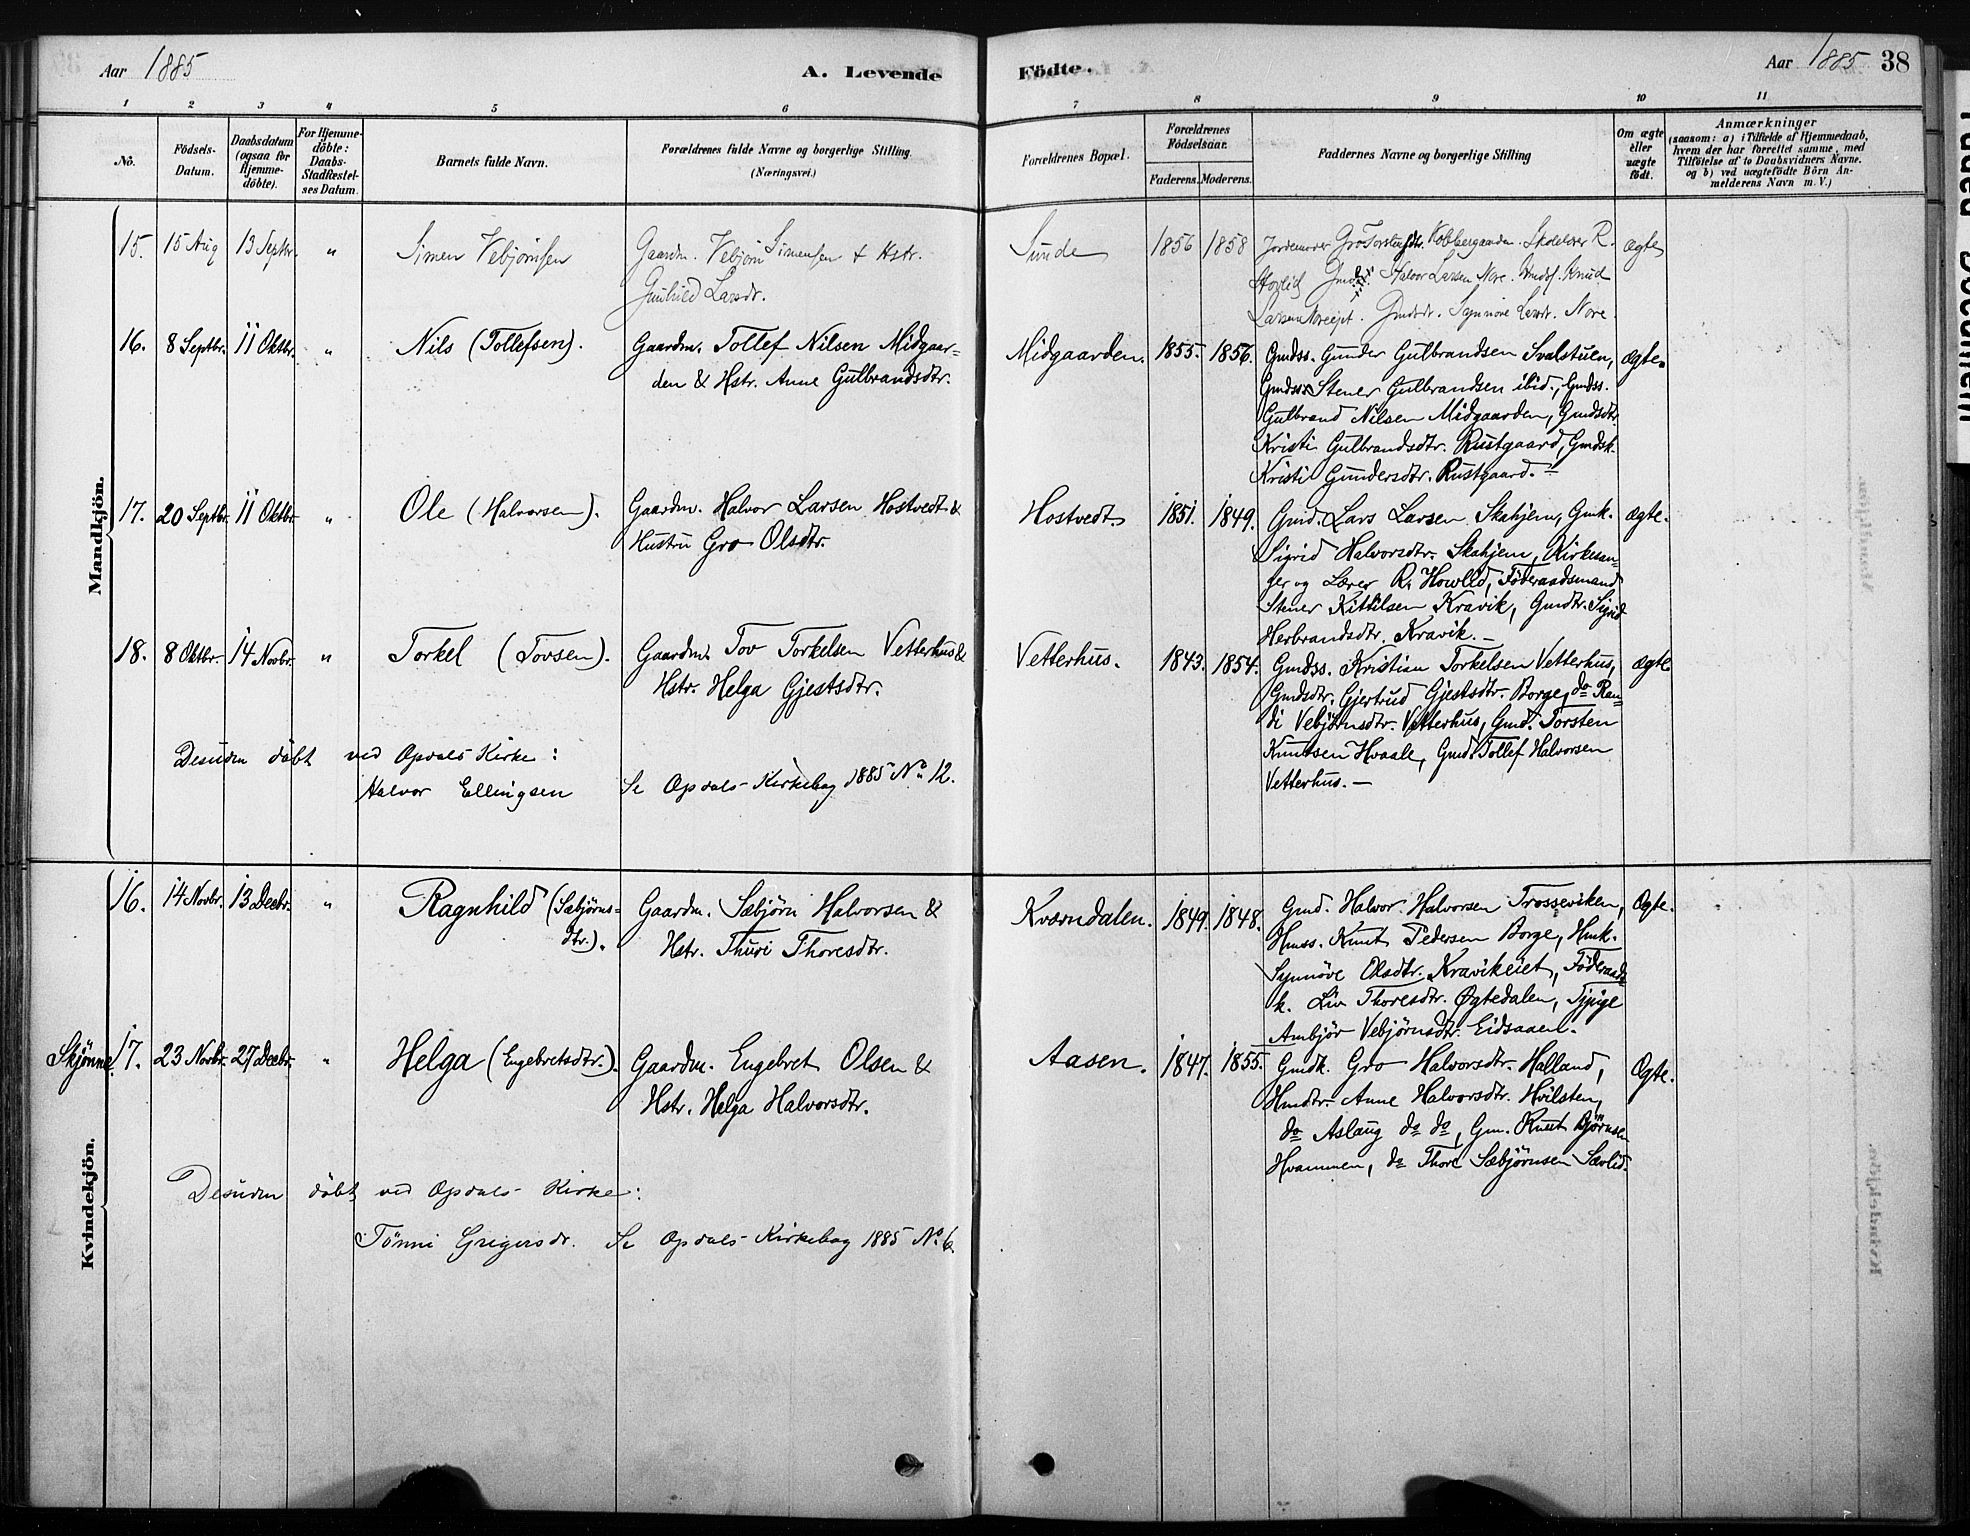 Aar 1885
A. Levende
Födte.
Aar 1885
38
1 2 3 4 5 6 7 8 9 10 11
No.
Födsels-
Datum.
Daabsdatum
(ogsaa for
Hjemme-
döbte).
For Hjemme-
döbte:
Daabs-
Stadfæstel-
ses Datum.
Barnets fulde Navn.
Forældrenes fulde Navne og borgerlige Stilling.
(Næringsvei.)
Forældrenes Bopæl.
Forældrenes
Födselsaar.
Faderens. Moderens.
Faddernes Navne og borgerlige Stilling
Om ægte
eller
uægte
födt.
Anmærkninger
(saasom: a) i Tilfælde af Hjemmedaab,
hvem der har forrettet samme, med
Tilföielse af to Daabsvidners Navne.
og b) ved uægtefödte Börn An-
melderens Navn m. V.)
Mandkjön.
15. 15 Aug 13 Septbr. " Simen Vebjørnsen
Gaardm. Vebjørn Simensen & Hstr.
Gunhild Larsdr.
Sunde 1856 1858
Jordemoder Gro Torstensdtr. Kobbergaarden. Skolelærer R.
Hovlid Halvor Larsen Nore. Knud
Larsen Noreeiet. Synnöve Larsdr. Nore.
ægte
16. 8 Septbr. 11 Oktbr. " Nils (Tollefsen).
Gaardm. Tollef Nilsen Midgaar-
den & Hstr. Anne Gulbrandsdtr.
Midgaarden. 1855. 1856.
Gmdss. Gunder Gulbrandsen Svalstuen,
Gmdss. Stener Gulbrandsen ibid., Gmdss.
Gulbrand Nilsen Midgaarden, Gmdsdtr.
Kristi Gulbrandsdtr. Rustgaard, Gmdsk.
Kristi Gundersdtr. Rustgaard. —
ægte.
17. 20 Septbr. 11 Oktbr. " Ole (Halvorsen).
Gaardm. Halvor Larsen Hostvedt &
Hustru Gro Olsdtr.
Hostvedt 1851. 1849.
Gmd. Lars Larsen Skahjem, Gmk.
Sigrid Halvorsdtr. Skahjem, Kirkesan-
ger og Lærer R. Howlid, Föderaadsmand
Stener Kittilsen Kravik, Gmdtr. Sigrid
Herbrandsdtr. Kravik. —
ægte.
18. 8 Oktbr. 14 Novbr. " Torkel (Tovsen).
Gaardm. Tov Torkelsen Vetterhus &
Hstr. Helga Gjestsdtr.
Vetterhus. 1843. 1854.
Gmdss. Kristian Torkelsen Vetterhus,
Gmdsdtr. Gjertrud Gjestsdtr. Borge, do Ran-
di Vebjørnsdtr. Vetterhus, Gmd. Torsten
Knutsen Hvaale, Gmd. Tollef Halvorsen
Vetterhus. —
ægte
Desuden döbt ved Opdals Kirke:
Halvor Ellingsen Se Opdals Kirkebog 1885 No. 12.
Kvindekjön.
16. 14 Novbr. 13 Decbr. " Ragnhild (Sæbjörns-
dtr.).
Gaardm. Sæbjörn Halvorsen &
Hstr. Thuri Thoresdtr.
Kværndalen. 1849. 1848.
Gmd. Halvor Halvorsen Trosseviken,
Hmss. Knut Pedersen Borge, Hmk.
Synnöve Olsdtr. Kravikeiet, Föderaads-
k. Liv Thoresdtr. Øgtedalen, Tjpige
Ambjör Vebjörnsdtr. Eidsaaen.
Ogte.
Skjønne
17. 23 Novbr. 27 Decbr. " Helga (Engebretsdtr.).
Gaardm. Engebret Olsen &
Hstr. Helga Halvorsdtr.
Aasen. 1847. 1855.
Gmdk. Gro Halvorsdtr. Halland,
Hmdtr. Anne Halvorsdtr. Hvilsten,
do Aslaug do do, Gm. Knut Björnsen
Hvammen, do Thore Sæbjörnsen Sævlid.
Ogte.
Desuden döbt ved Opdals Kirke:
Tönni Gregersdr. Se Opdals Kirkebog 1885 No. 6.